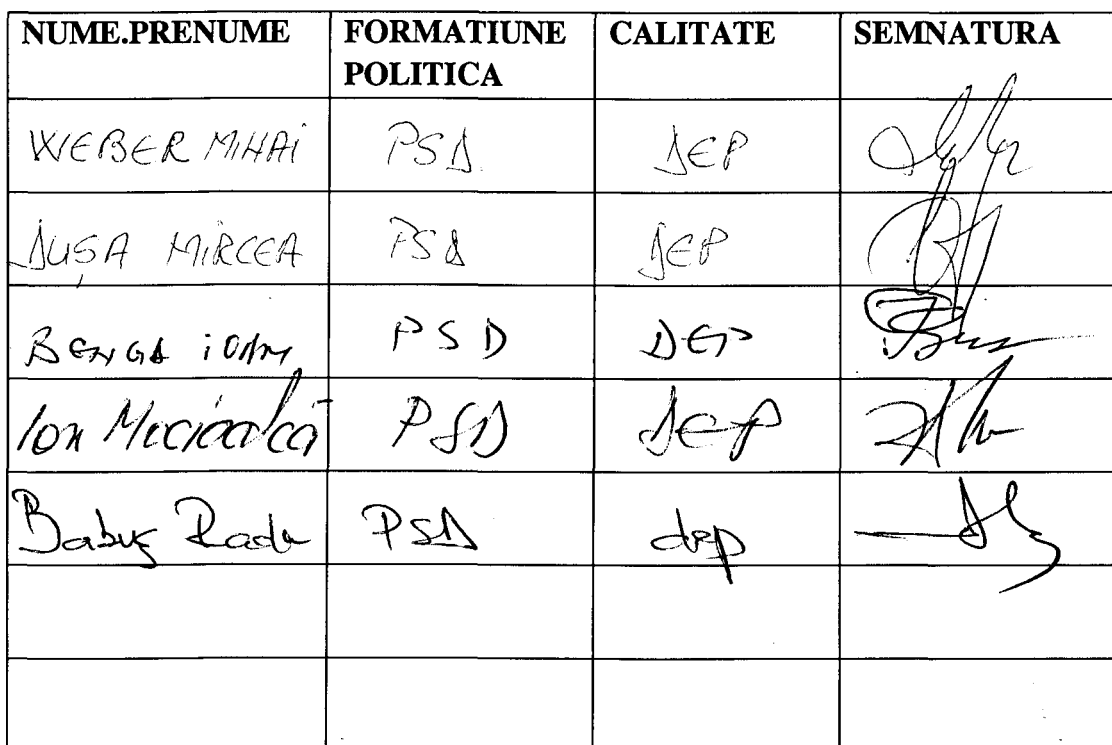 NUME.PRENUME FORMATIUNE POLITICA CALITATE SEMNATURA
WEBER MIHAI PSD DEP
DUȘA MIRCEA PSD DEP
BENGA IOAN PSD DEP
Ion Mocioalcă PSD DEP
Babuș Radu PSD dep